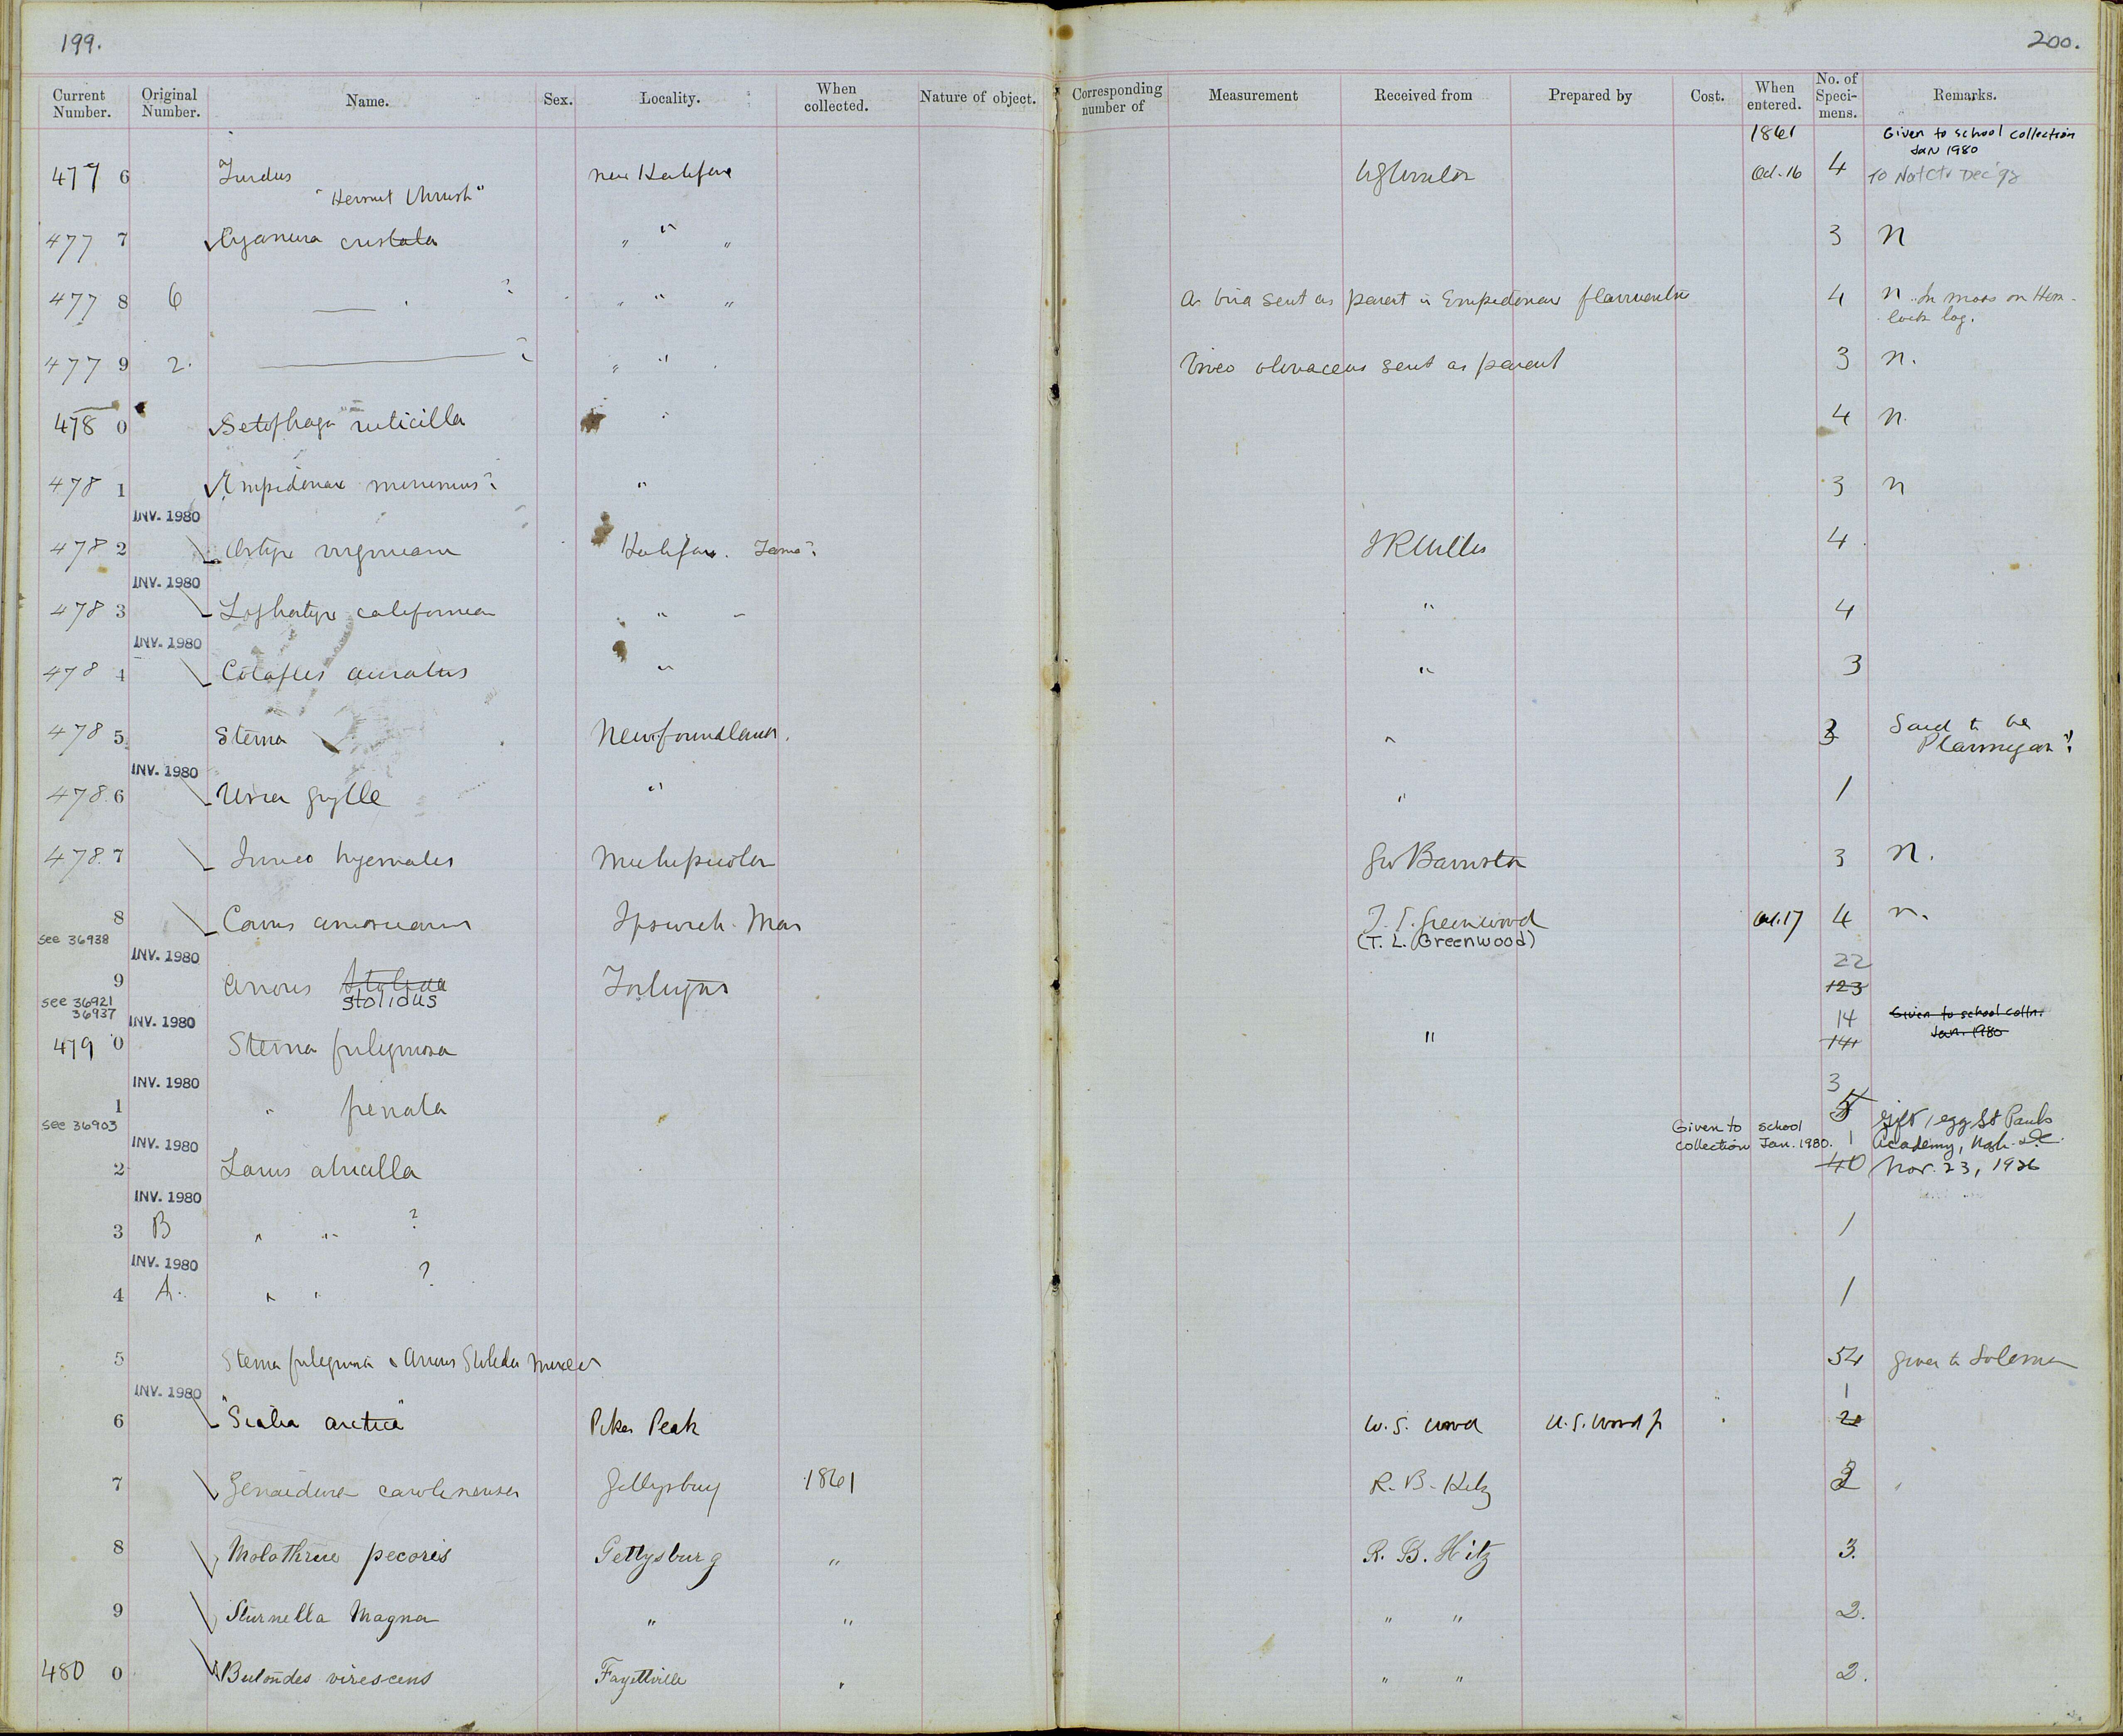 199.
200.
Current Number. Original Number. Name. Sex. Locality. When collected. Nature of object. Corresponding number of Measurement Received from Prepared by Cost. When entered. No. of Speci-mens. Remarks.
1861 Given to school collection
Jan 1980
477 6 Turdus near Halifax Oct. 16 4 To Nat Ctr Dec '98
"Hermit Thrush"
477 7 Cyanura cristata " " " 3 n
477 8 6 — ? " " " As bird sent as parent is Empidonax flaviventris 4 n. In moss on Hem-
lock log.
477 9 2. — ? " " Vireo olivaceus sent as parent 3 n.
478 0 Setophaga ruticilla " 4 n.
478 1 Empidonax minimus? " 3 n
INV. 1980
478 2 Ortyx virginiana Halifax. Tame? J R Willis 4
INV. 1980
478 3 Lophortyx californica " " " 4
INV. 1980
478 4 Colaptes auratus " " 3
478 5 Sterna Newfoundland. " 3 Said to be
Ptarmigan"!
INV. 1980
478 6 Uria grylle " " 1
478 7 Junco hyemalis Michipicoton Geo Barnston 3 n.
8 Corvus americanus Ipswich Mas T. L. Greenwood Oct. 17 4 n.
see 36938 (T. L. Greenwood)
INV. 1980 22
9 Anous Stolida Tortugas 123
see 36921 stolidus
36937 INV. 1980 14 Given to school colltn.
Jan. 1980
479 0 Sterna fuliginosa " 141
INV. 1980 3
1 " frenata 5
see 36903 Given to school gift 1 egg St Pauls
INV. 1980 collection Jan. 1980. 1 Academy, Wash. D.C.
2 Larus atricilla 40 Nov. 23, 1926
INV. 1980
3 B " " ? 1
INV. 1980
4 A. " " ? 1
5 Sterna fuliginosa & Anous Stolida mixed 54 given to Solomon
INV. 1980 1
6 "Sialia arctica" Pikes Peak W. S. Wood W. S. Wood Jr 20
7 Zenaidura carolinensis Gettysburg 1861 R. B. Hitz 2
8 Molothrus pecoris Gettysburg " R. B. Hitz 3.
9 Sturnella Magna " " " " 2.
480 0 Butorides virescens Fayettville " " " 2.